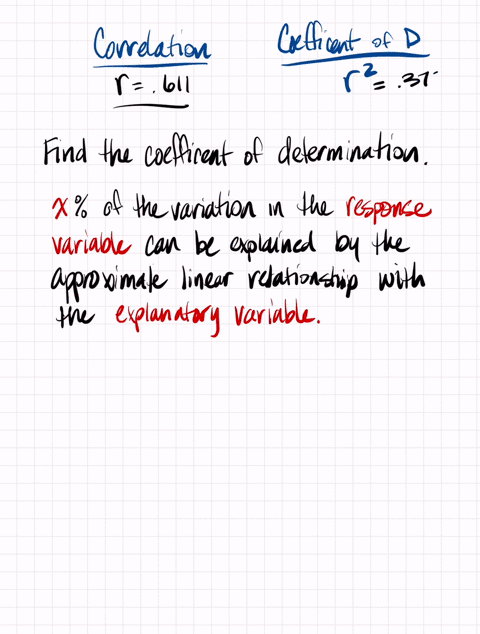 Correlation
Coefficent of D
r = .611
r² = .37
Find the coefficent of determination.
x% of the variation in the response
variable can be explained by the
approximate linear relationship with
the explanatory variable.